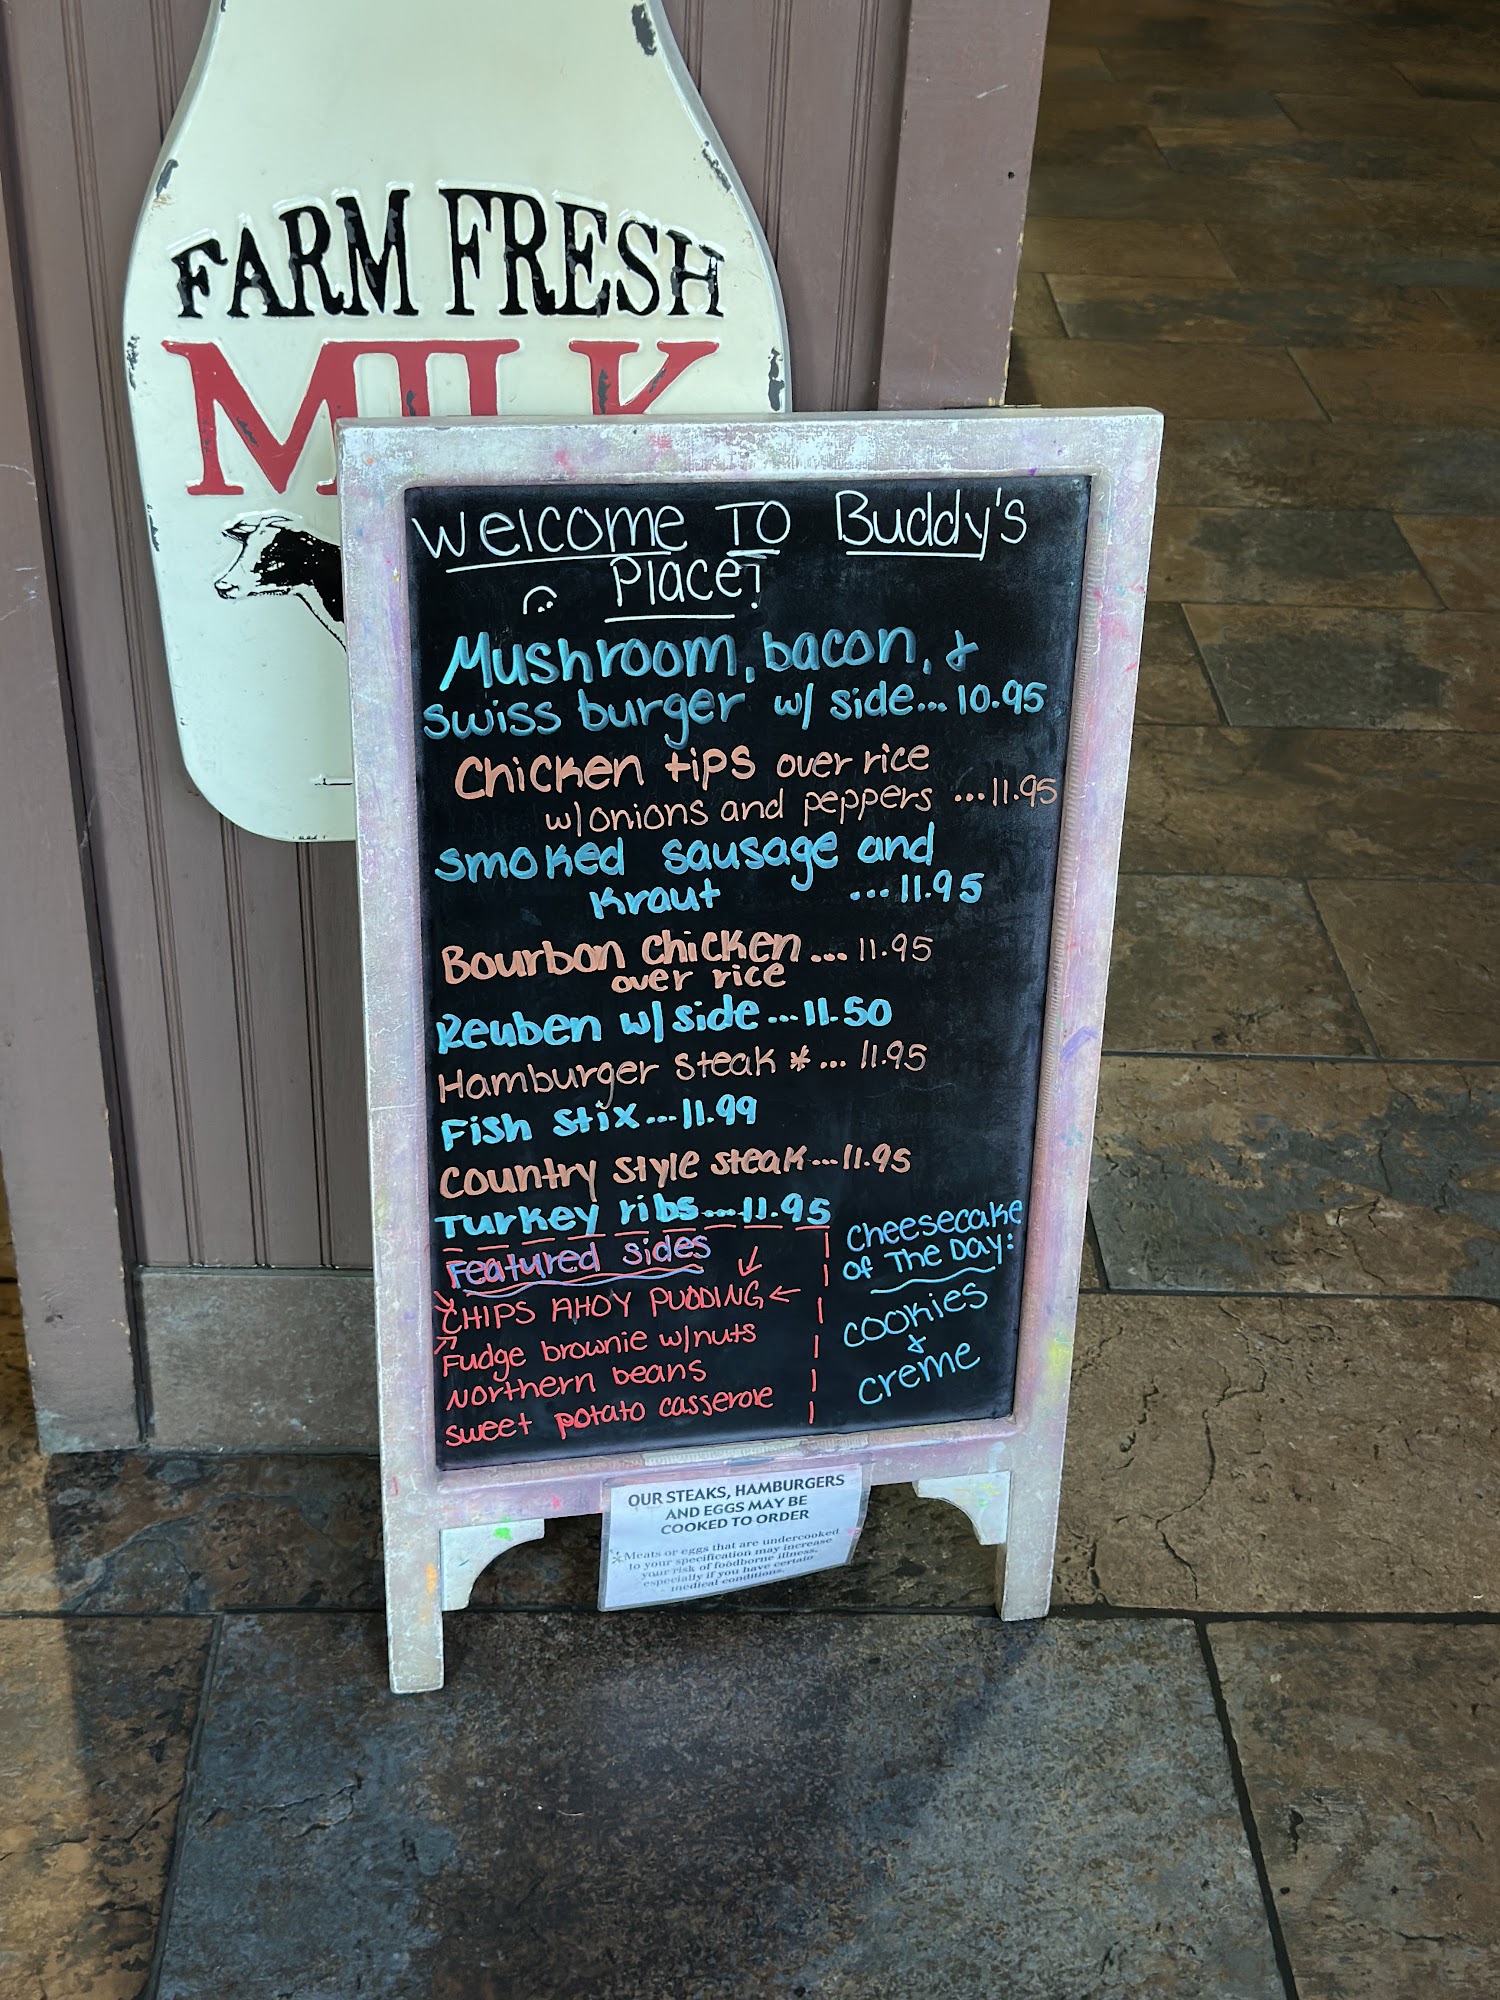 FARM FRESH
MILK
Welcome TO Buddy's
Place!
Mushroom, bacon, &
swiss burger w/ side... 10.95
Chicken tips over rice
w/onions and peppers ...11.95
Smoked sausage and
Kraut ...11.95
Bourbon Chicken ... 11.95
over rice
Reuben w/ side ... 11.50
Hamburger steak * ... 11.95
Fish stix...11.99
Country style steak...11.95
Turkey ribs...11.95
Featured sides
CHIPS AHOY PUDDING
Fudge brownie w/nuts
Northern beans
sweet potato casserole
Cheesecake
of The Day:
cookies
&
creme
OUR STEAKS, HAMBURGERS
AND EGGS MAY BE
COOKED TO ORDER
*Meats or eggs that are undercooked
to your specification may increase
your risk of foodborne illness,
especially if you have certain
medical conditions.